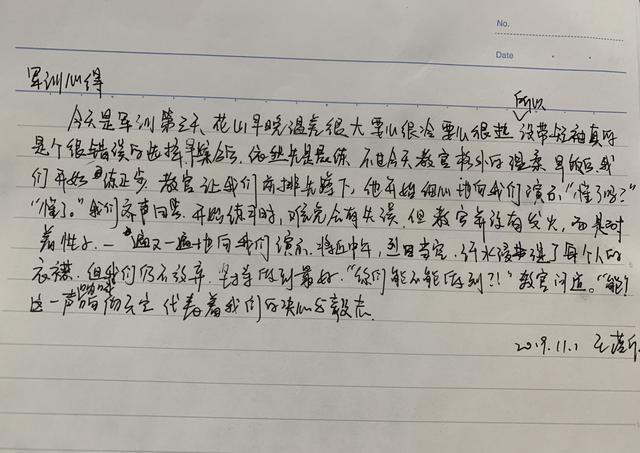 No.
Date
军训心得
所以
今天是军训第三天,花山早晚温差很大要么很冷要么很热 没带短袖真的
是个很错误的选择早操今后,依然先是晨练,不过今天教官格外的温柔,早饭后,我
们开始练正步,教官让我们前排先蹲下,他开始细心地向我们演示,“懂了吗?”
“懂了。”我们齐声回答,开始练习时,难免会有失误,但教官并没有发火,而是耐
着性子,一遍又一遍地向我们演示,将近中午,烈日当空,汗水浸湿了每个人的
衣襟,但我们仍不放弃,坚持做到最好,“你们能不能做到?!”教官问道。“能!”
这一声响彻云天 代表着我们的决心与毅志.
2019.11.1 王